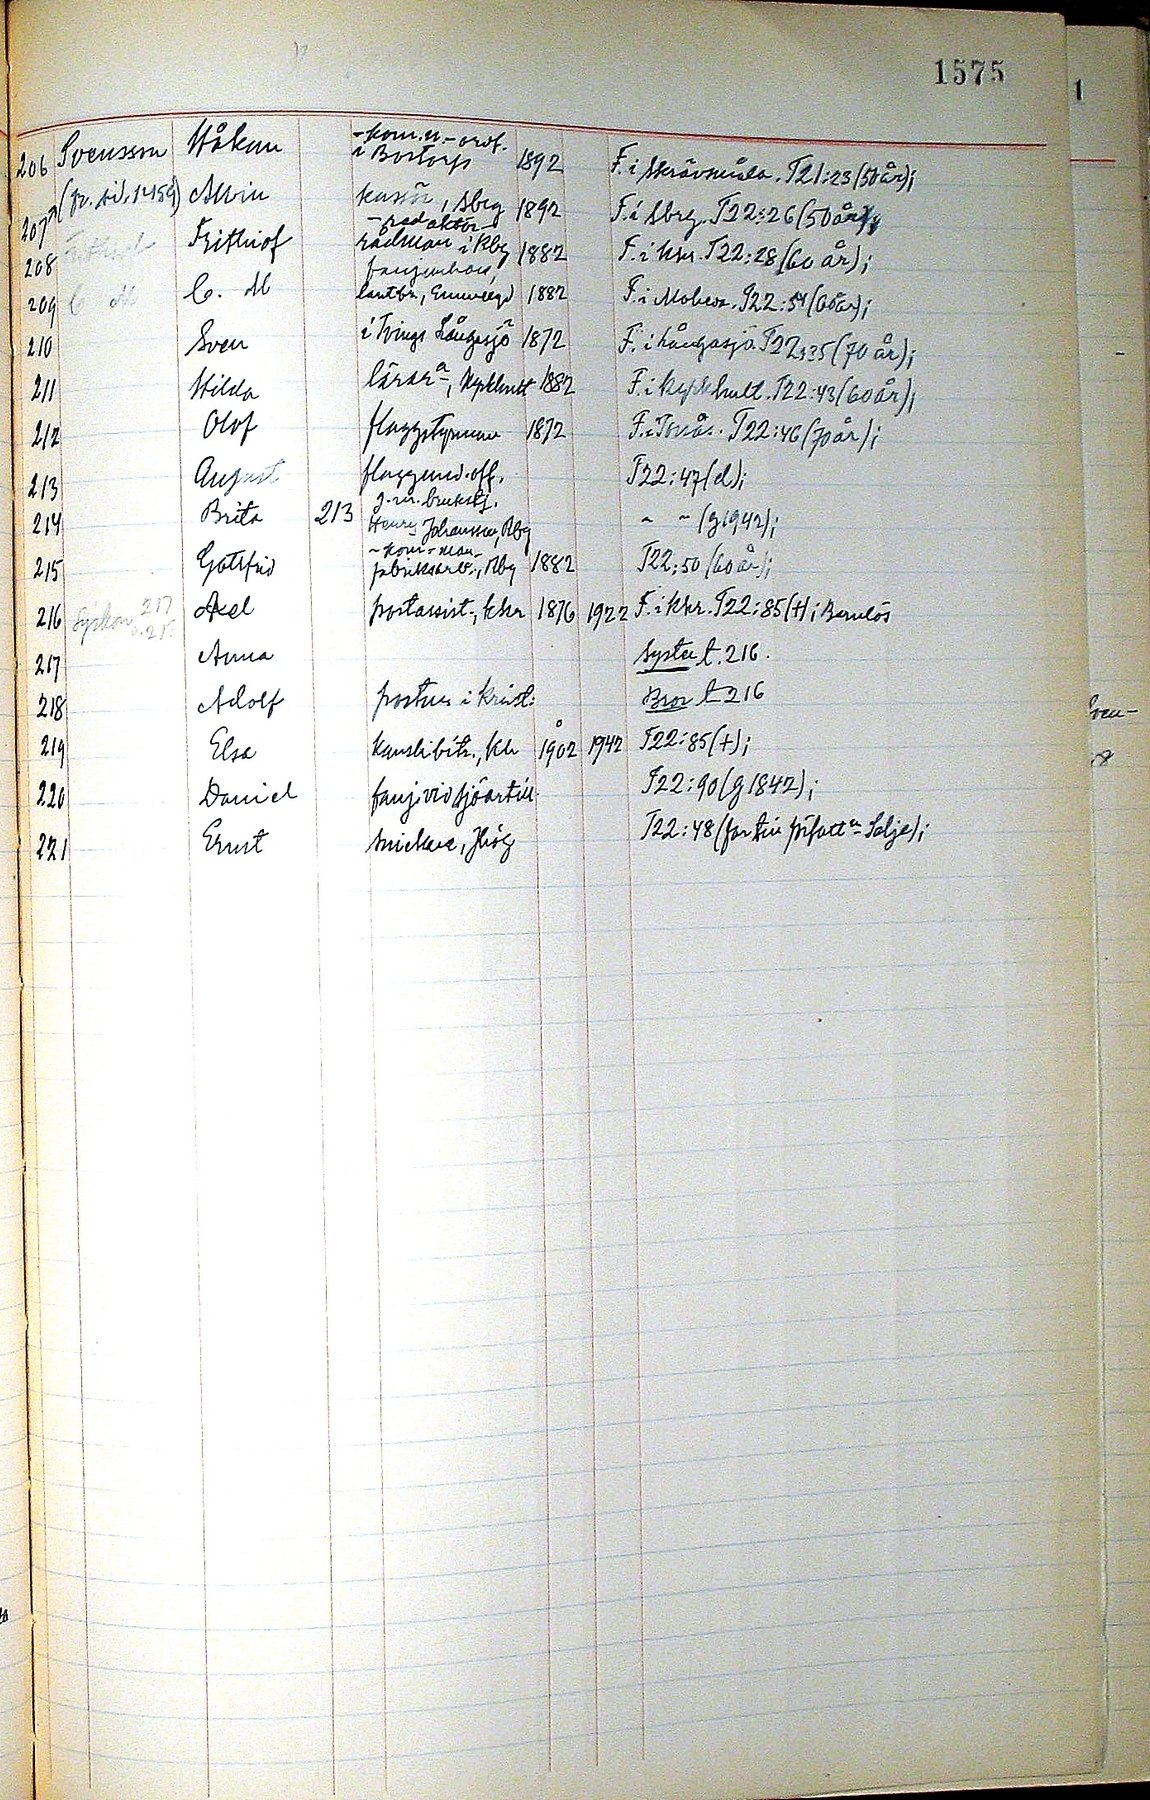 1575
1
206 Svensson Håkan -kom.n.-ordf. i Bostorp 1892 F. i Skrävmåla. T21:23 (50 år);
207 (fr. sid. 1459) Alvin kassör, Sbrg 1892 F. i Sbrg. T22:26 (50 år);
208 Frithiof -redaktör- rådman i Kbg 1882 F. i khr. T22:28 (60 år);
209 C. M C. M fanjunkare, lantbr., 1882 F. i T22:54 (60 år);
210 Sven i Tvings Långasjö 1872 F. i Långasjö. T22:35 (70 år);
211 Hilda lärar-a, Kyrkhult 1882 F. i Kyrkhult. T22:43 (60 år);
212 Olof flaggstyrman 1872 F. i T22:46 (70 år);
213 August flaggund.off. T22:47 (d);
214 Brita 213 g.m. Henry Johansson, Rby ~ ~ (g 1942);
215 Gottfrid fabriksarb., Rby 1882 T22:50 (60 år);
216 Syskon 217 o. 218 Axel postassist., khr 1876 1922 F. i khr. T22:85 (+);
217 Anna Syster t. 216.
218 Adolf postm. i Krist: Bror t 216
219 Elsa kanslibitr., Kh 1902 1942 T22:85 (+);
220 Daniel fanj. vid sjöartill T22:90 (g 1842);
221 Ernst snickare, T22:48 (far till författ-n Salje);